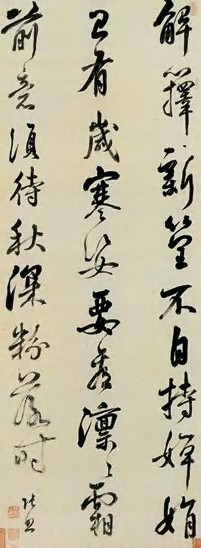 解籜新篁不自持嬋娟
已有歲寒姿要看凜〻霜
前意須待秋深粉落時